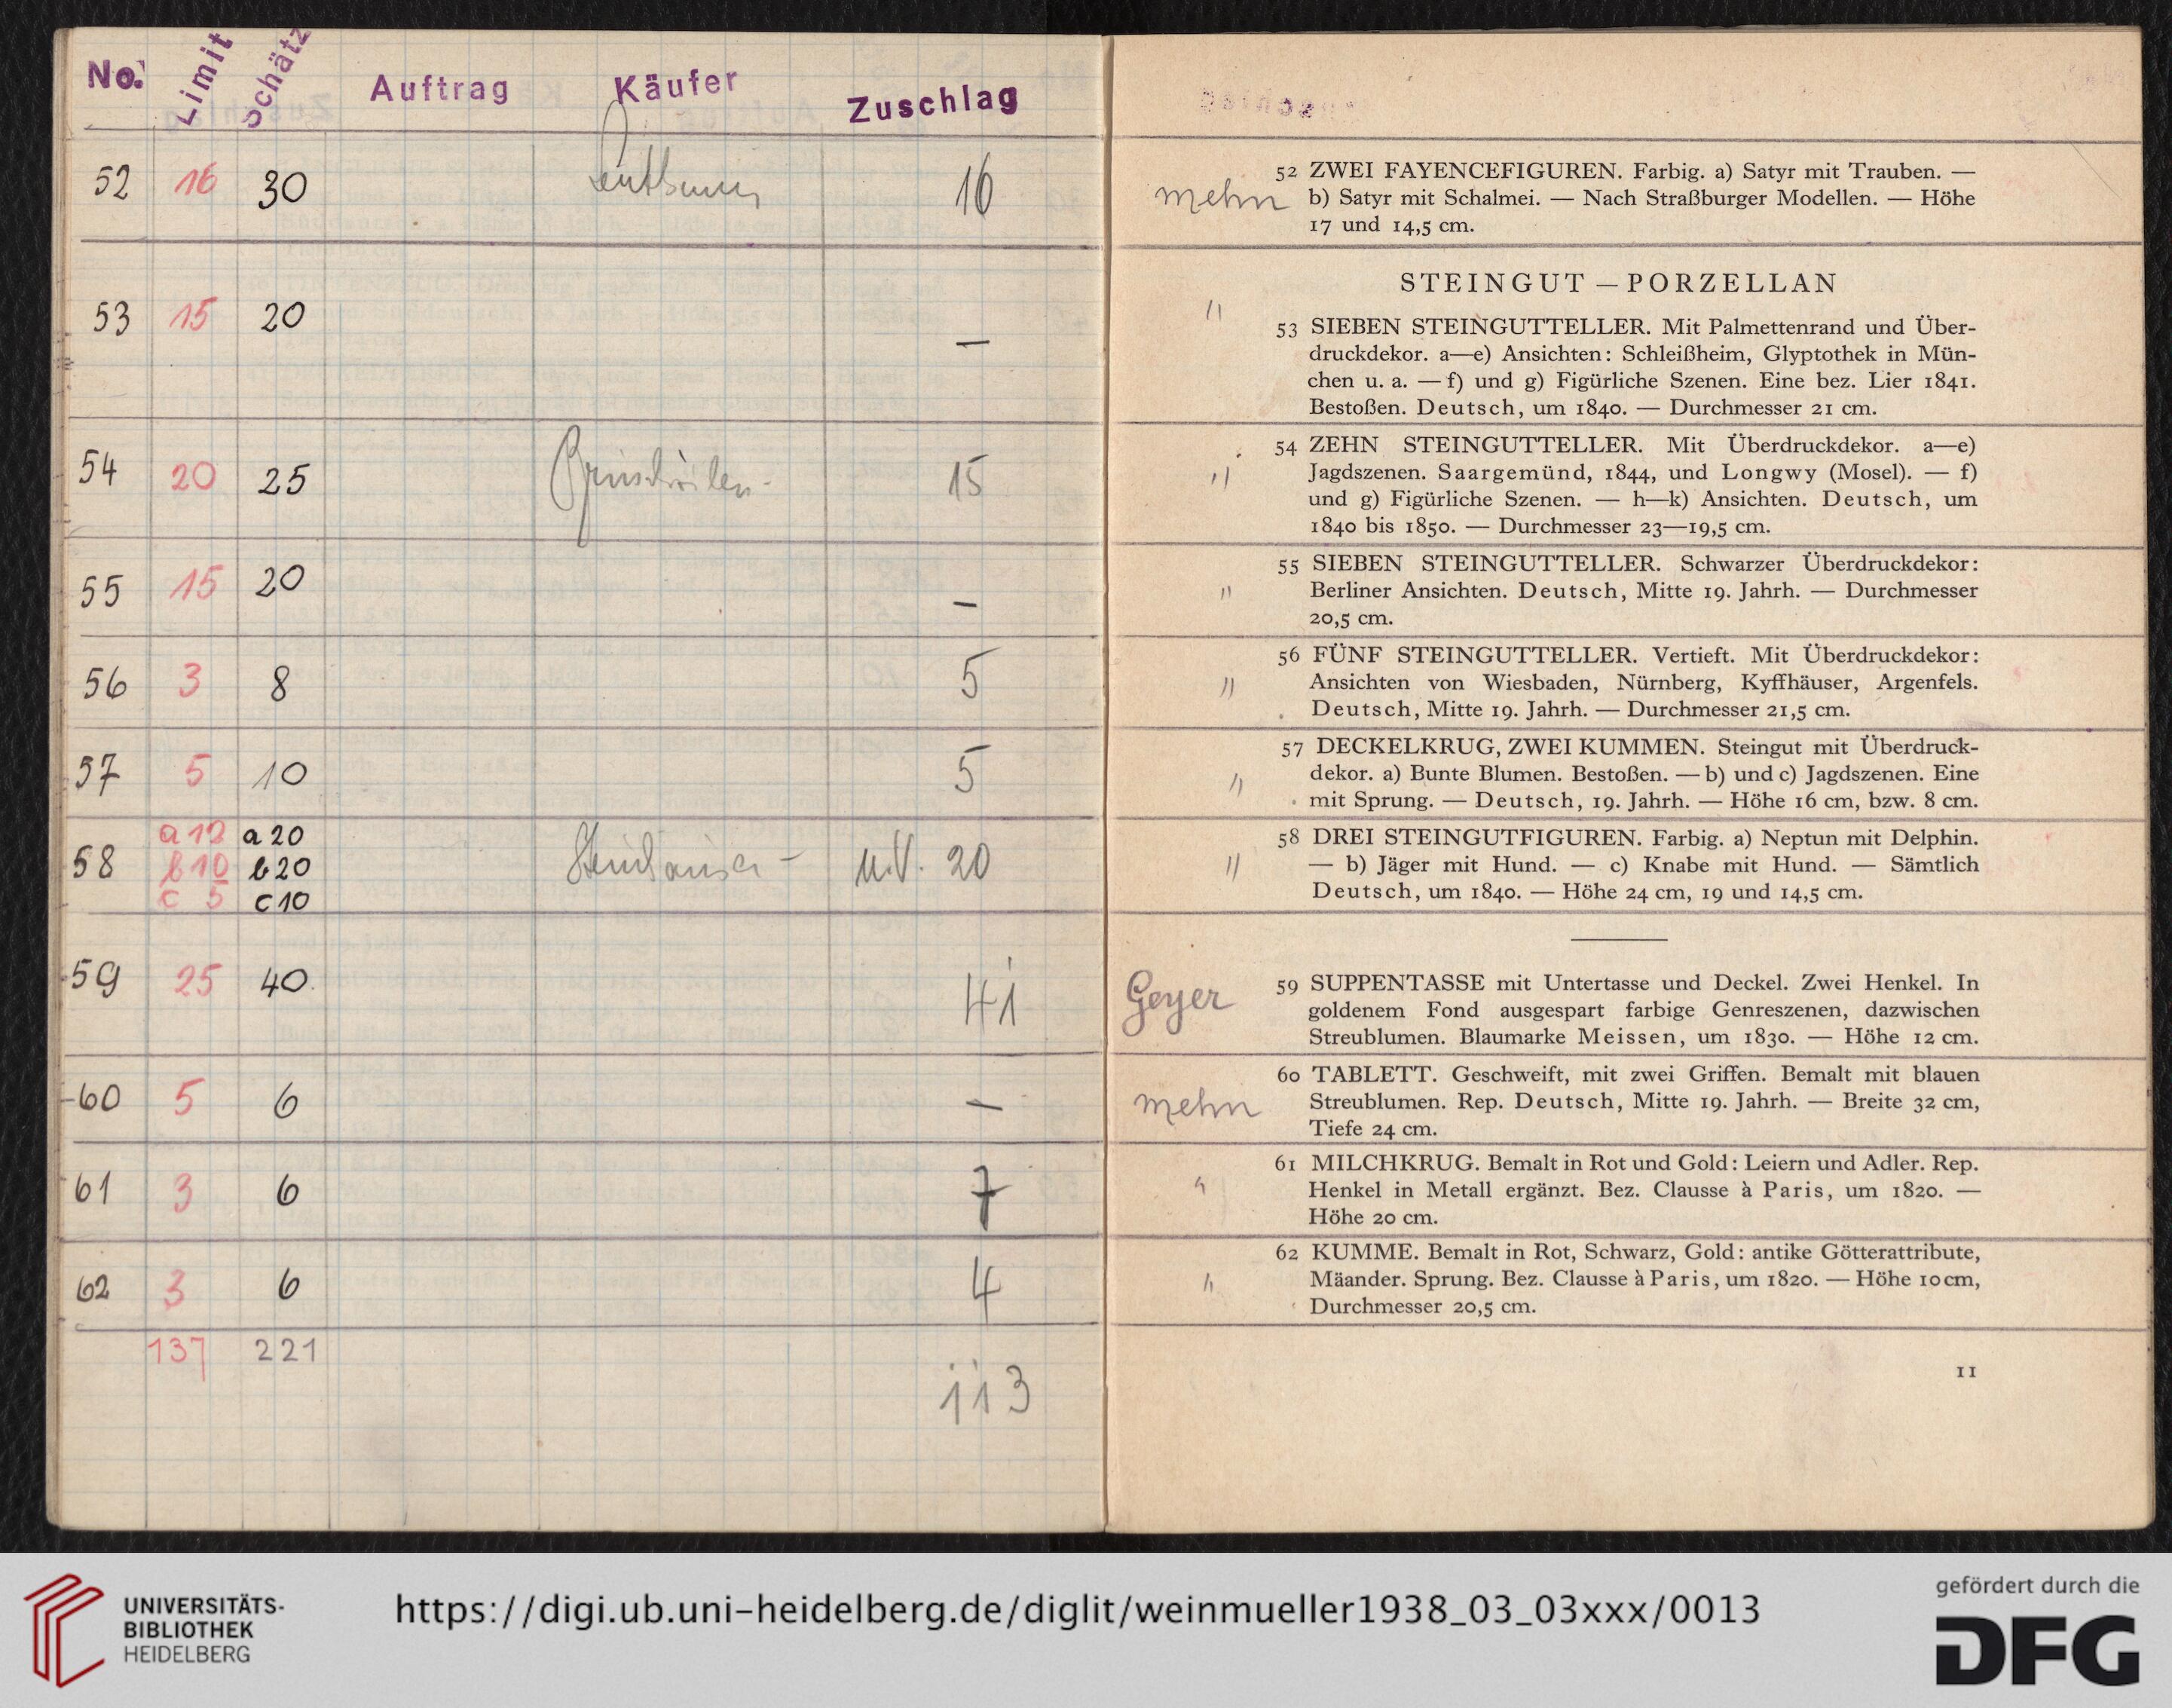 No. Limit Schätz Auftrag Käufer Zuschlag
52 16 30 16
53 15 20 —
54 20 25 15
55 15 20 —
56 3 8 5
57 5 10 5
58 a 12 a 20 u.V. 20
b 10 b 20
c 5 c 10
59 25 40 41
60 5 6 —
61 3 6 7
62 3 6 4
137 221 113
mehn
52 ZWEI FAYENCEFIGUREN. Farbig. a) Satyr mit Trauben. —
b) Satyr mit Schalmei. — Nach Straßburger Modellen. — Höhe
17 und 14,5 cm.
STEINGUT — PORZELLAN
"
53 SIEBEN STEINGUTTELLER. Mit Palmettenrand und Über-
druckdekor. a—e) Ansichten: Schleißheim, Glyptothek in Mün-
chen u. a. — f) und g) Figürliche Szenen. Eine bez. Lier 1841.
Bestoßen. Deutsch, um 1840. — Durchmesser 21 cm.
"
54 ZEHN STEINGUTTELLER. Mit Überdruckdekor. a—e)
Jagdszenen. Saargemünd, 1844, und Longwy (Mosel). — f)
und g) Figürliche Szenen. — h—k) Ansichten. Deutsch, um
1840 bis 1850. — Durchmesser 23—19,5 cm.
"
55 SIEBEN STEINGUTTELLER. Schwarzer Überdruckdekor:
Berliner Ansichten. Deutsch, Mitte 19. Jahrh. — Durchmesser
20,5 cm.
"
56 FÜNF STEINGUTTELLER. Vertieft. Mit Überdruckdekor:
Ansichten von Wiesbaden, Nürnberg, Kyffhäuser, Argenfels.
Deutsch, Mitte 19. Jahrh. — Durchmesser 21,5 cm.
"
57 DECKELKRUG, ZWEI KUMMEN. Steingut mit Überdruck-
dekor. a) Bunte Blumen. Bestoßen. — b) und c) Jagdszenen. Eine
mit Sprung. — Deutsch, 19. Jahrh. — Höhe 16 cm, bzw. 8 cm.
"
58 DREI STEINGUTFIGUREN. Farbig. a) Neptun mit Delphin.
— b) Jäger mit Hund. — c) Knabe mit Hund. — Sämtlich
Deutsch, um 1840. — Höhe 24 cm, 19 und 14,5 cm.
Geyer
59 SUPPENTASSE mit Untertasse und Deckel. Zwei Henkel. In
goldenem Fond ausgespart farbige Genreszenen, dazwischen
Streublumen. Blaumarke Meissen, um 1830. — Höhe 12 cm.
mehn
60 TABLETT. Geschweift, mit zwei Griffen. Bemalt mit blauen
Streublumen. Rep. Deutsch, Mitte 19. Jahrh. — Breite 32 cm,
Tiefe 24 cm.
"
61 MILCHKRUG. Bemalt in Rot und Gold: Leiern und Adler. Rep.
Henkel in Metall ergänzt. Bez. Clausse à Paris, um 1820. —
Höhe 20 cm.
"
62 KUMME. Bemalt in Rot, Schwarz, Gold: antike Götterattribute,
Mäander. Sprung. Bez. Clausse à Paris, um 1820. — Höhe 10 cm,
Durchmesser 20,5 cm.
11
UNIVERSITÄTS-
BIBLIOTHEK
HEIDELBERG
https://digi.ub.uni-heidelberg.de/diglit/weinmueller1938_03_03xxx/0013
gefördert durch die
DFG